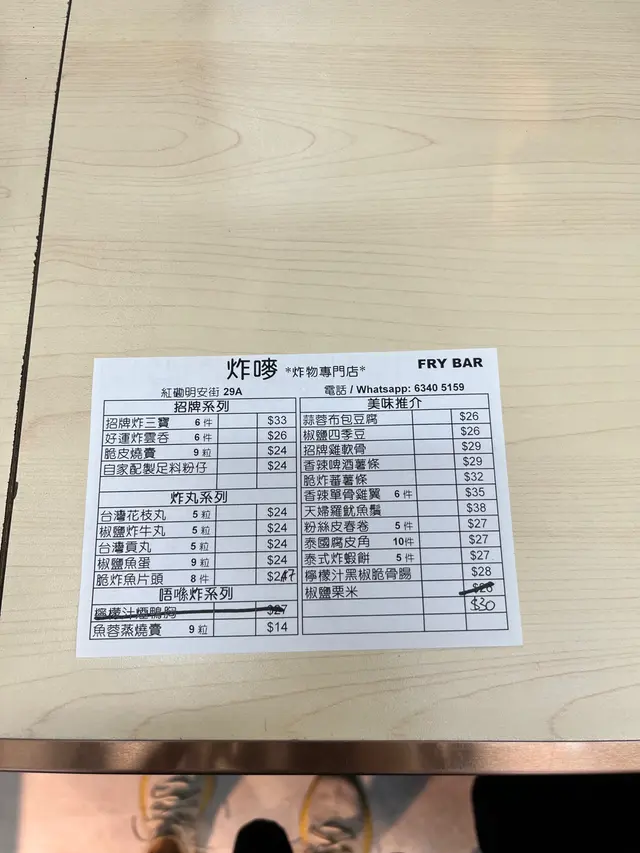 炸嘜 *炸物專門店* FRY BAR
紅磡明安街 29A 電話 / Whatsapp: 6340 5159
招牌系列
招牌炸三寶 6 件 $33
好運炸雲吞 6 件 $26
脆皮燒賣 9 粒 $24
自家配製足料粉仔 $24
炸丸系列
台灣花枝丸 5 粒 $24
椒鹽炸牛丸 5 粒 $24
台灣貢丸 5 粒 $24
椒鹽魚蛋 9 粒 $24
脆炸魚片頭 8 件
唔係炸系列
檸檬汁煙鴨胸 $27
魚蓉蒸燒賣 9 粒 $14
美味推介
蒜蓉布包豆腐 $26
椒鹽四季豆 $26
招牌雞軟骨 $29
香辣啤酒薯條 $29
脆炸蕃薯條 $32
香辣單骨雞翼 6 件 $35
天婦羅魷魚鬚 $38
粉絲皮春卷 5 件 $27
泰國腐皮角 10件 $27
泰式炸蝦餅 5 件 $27
檸檬汁黑椒脆骨腸 $28
椒鹽粟米 $26
$30